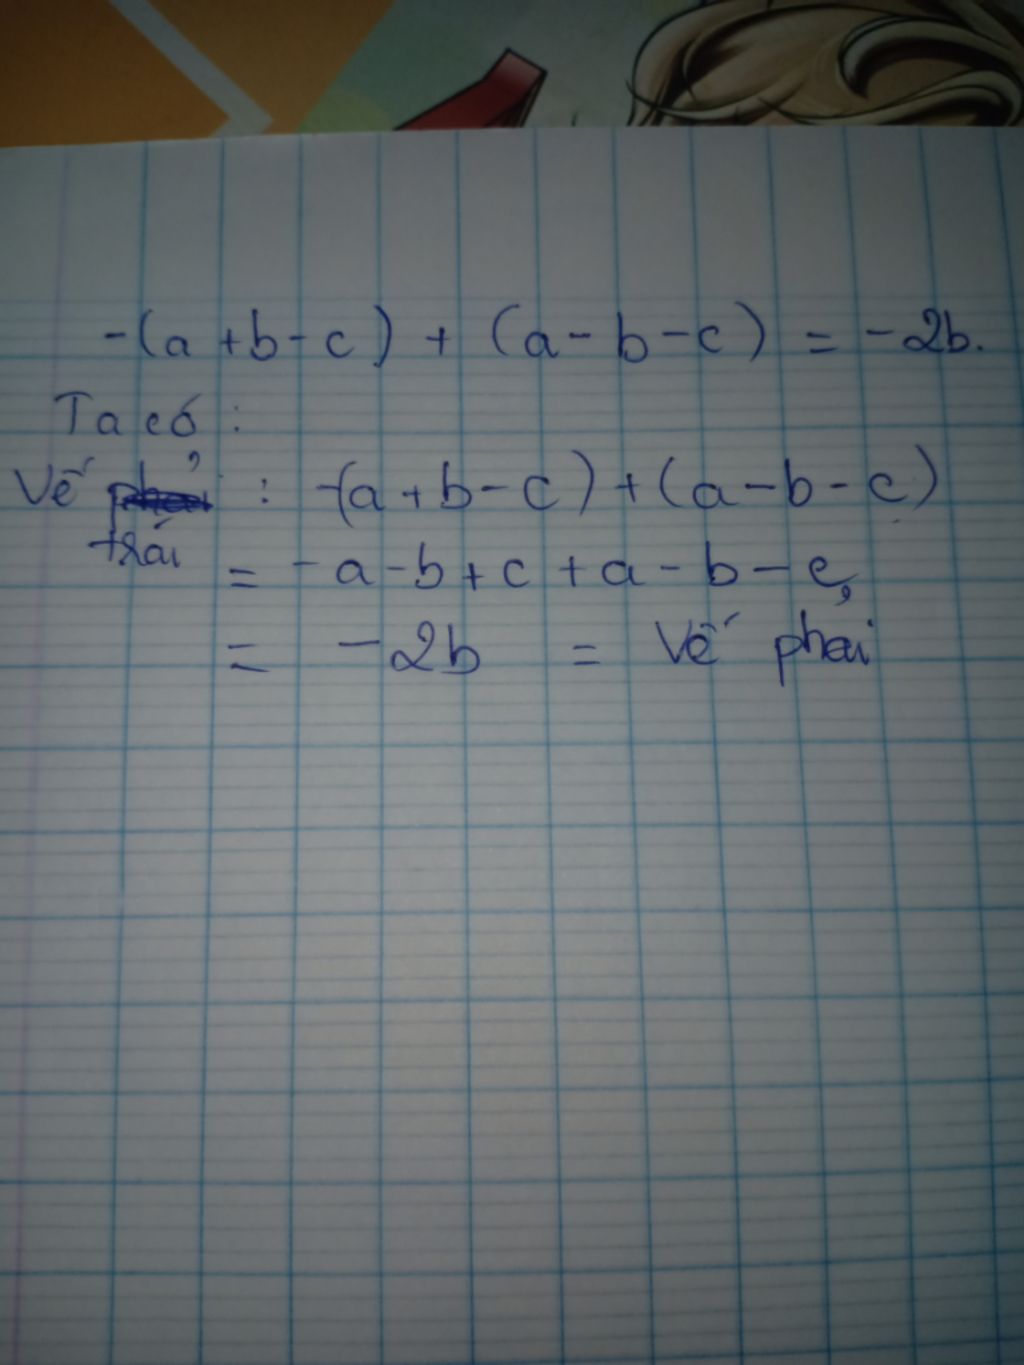 -(a + b - c) + (a - b - c) = -2b.
Ta có :
Vế trái : -(a + b - c) + (a - b - c)
= - a - b + c + a - b - c
= - 2b = Vế phải